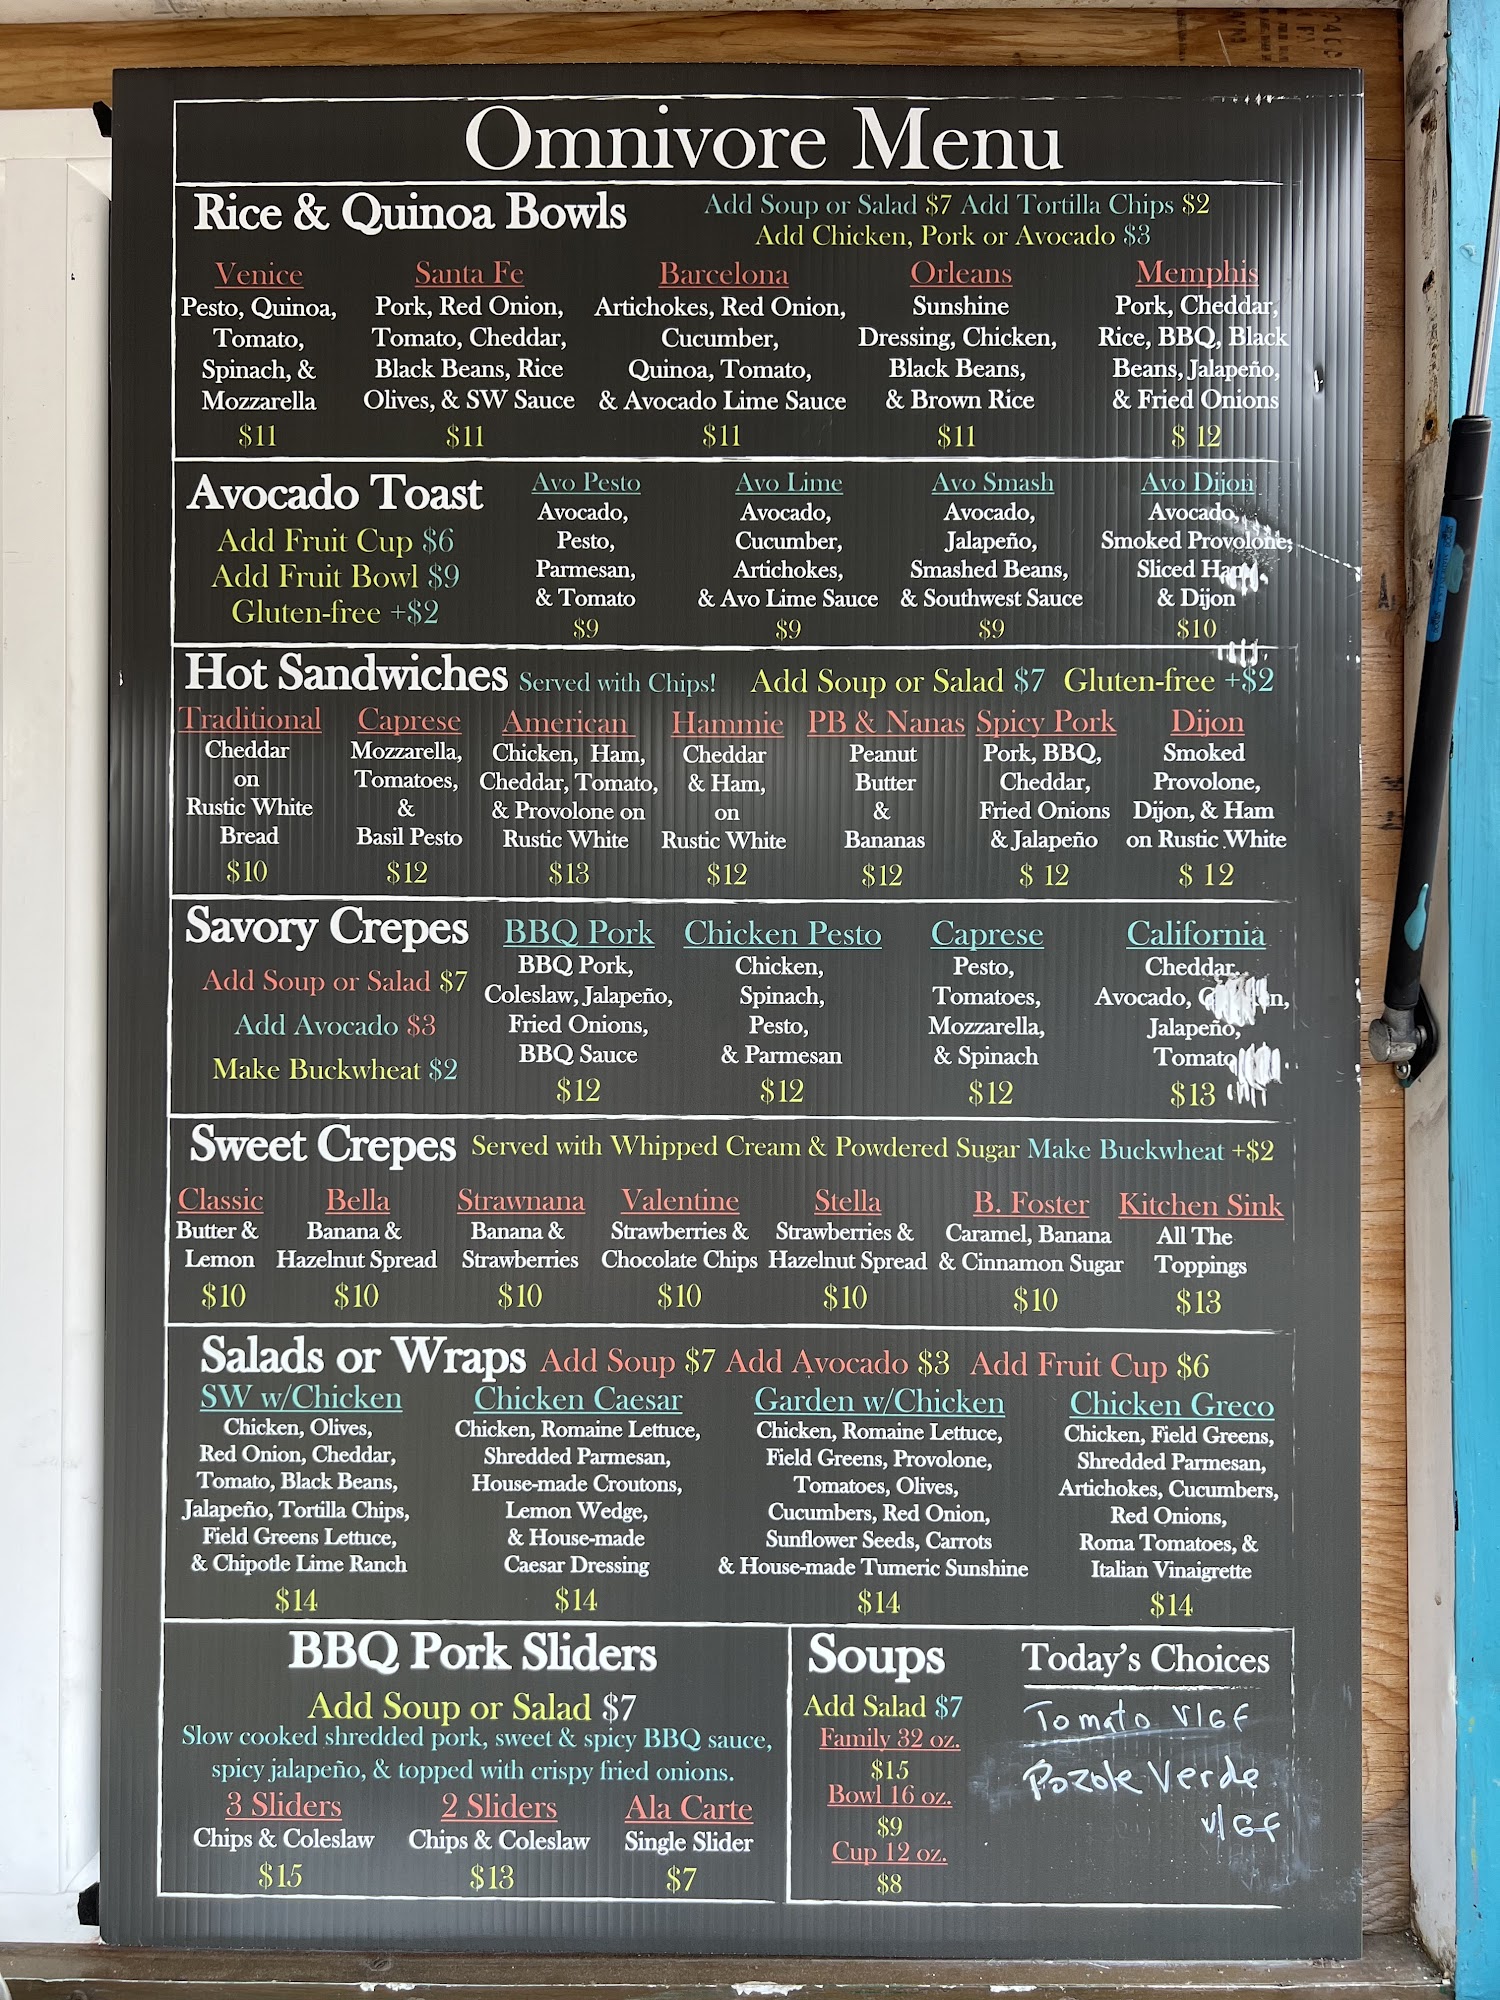 Omnivore Menu
Rice & Quinoa Bowls
Add Soup or Salad $7 Add Tortilla Chips $2
Add Chicken, Pork or Avocado $3
Venice
Pesto, Quinoa,
Tomato,
Spinach, &
Mozzarella
$11
Santa Fe
Pork, Red Onion,
Tomato, Cheddar,
Black Beans, Rice
Olives, & SW Sauce
$11
Barcelona
Artichokes, Red Onion,
Cucumber,
Quinoa, Tomato,
& Avocado Lime Sauce
$11
Orleans
Sunshine
Dressing, Chicken,
Black Beans,
& Brown Rice
$11
Memphis
Pork, Cheddar,
Rice, BBQ, Black
Beans, Jalapeño,
& Fried Onions
$ 12
Avocado Toast
Add Fruit Cup $6
Add Fruit Bowl $9
Gluten-free +$2
Avo Pesto
Avocado,
Pesto,
Parmesan,
& Tomato
$9
Avo Lime
Avocado,
Cucumber,
Artichokes,
& Avo Lime Sauce
$9
Avo Smash
Avocado,
Jalapeño,
Smashed Beans,
& Southwest Sauce
$9
Avo Dijon
Avocado,
Smoked Provolone,
Sliced Ham
& Dijon
$10
Hot Sandwiches Served with Chips! Add Soup or Salad $7 Gluten-free +$2
Traditional
Cheddar
on
Rustic White
Bread
$10
Caprese
Mozzarella,
Tomatoes,
&
Basil Pesto
$12
American
Chicken, Ham,
Cheddar, Tomato,
& Provolone on
Rustic White
$13
Hammie
Cheddar
& Ham,
on
Rustic White
$12
PB & Nanas
Peanut
Butter
&
Bananas
$12
Spicy Pork
Pork, BBQ,
Cheddar,
Fried Onions
& Jalapeño
$ 12
Dijon
Smoked
Provolone,
Dijon, & Ham
on Rustic White
$ 12
Savory Crepes
Add Soup or Salad $7
Add Avocado $3
Make Buckwheat $2
BBQ Pork
BBQ Pork,
Coleslaw, Jalapeño,
Fried Onions,
BBQ Sauce
$12
Chicken Pesto
Chicken,
Spinach,
Pesto,
& Parmesan
$12
Caprese
Pesto,
Tomatoes,
Mozzarella,
& Spinach
$12
California
Cheddar,
Avocado,
Jalapeño,
Tomato
$13
Sweet Crepes Served with Whipped Cream & Powdered Sugar Make Buckwheat +$2
Classic
Butter &
Lemon
$10
Bella
Banana &
Hazelnut Spread
$10
Strawnana
Banana &
Strawberries
$10
Valentine
Strawberries &
Chocolate Chips
$10
Stella
Strawberries &
Hazelnut Spread
$10
B. Foster
Caramel, Banana
& Cinnamon Sugar
$10
Kitchen Sink
All The
Toppings
$13
Salads or Wraps Add Soup $7 Add Avocado $3 Add Fruit Cup $6
SW w/Chicken
Chicken, Olives,
Red Onion, Cheddar,
Tomato, Black Beans,
Jalapeño, Tortilla Chips,
Field Greens Lettuce,
& Chipotle Lime Ranch
$14
Chicken Caesar
Chicken, Romaine Lettuce,
Shredded Parmesan,
House-made Croutons,
Lemon Wedge,
& House-made
Caesar Dressing
$14
Garden w/Chicken
Chicken, Romaine Lettuce,
Field Greens, Provolone,
Tomatoes, Olives,
Cucumbers, Red Onion,
Sunflower Seeds, Carrots
& House-made Tumeric Sunshine
$14
Chicken Greco
Chicken, Field Greens,
Shredded Parmesan,
Artichokes, Cucumbers,
Red Onions,
Roma Tomatoes, &
Italian Vinaigrette
$14
BBQ Pork Sliders
Add Soup or Salad $7
Slow cooked shredded pork, sweet & spicy BBQ sauce,
spicy jalapeño, & topped with crispy fried onions.
3 Sliders
Chips & Coleslaw
$15
2 Sliders
Chips & Coleslaw
$13
Ala Carte
Single Slider
$7
Soups
Add Salad $7
Family 32 oz.
$15
Bowl 16 oz.
$9
Cup 12 oz.
$8
Today's Choices
Tomato V/GF
Pozole Verde
V/GF